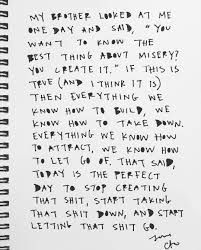 MY BROTHER LOOKED AT ME
ONE DAY AND SAID, "YOU
WANT TO KNOW THE
BEST THING ABOUT MISERY?
YOU CREATE IT." IF THIS IS
TRUE (AND I THINK IT IS)
THEN EVERYTHING WE
KNOW HOW TO BUILD, WE
KNOW HOW TO TAKE DOWN.
EVERYTHING WE KNOW HOW
TO ATTRACT, WE KNOW HOW
TO LET GO OF. THAT SAID,
TODAY IS THE PERFECT
DAY TO STOP CREATING
THAT SHIT, START TAKING
THAT SHIT DOWN, AND START
LETTING THAT SHIT GO.